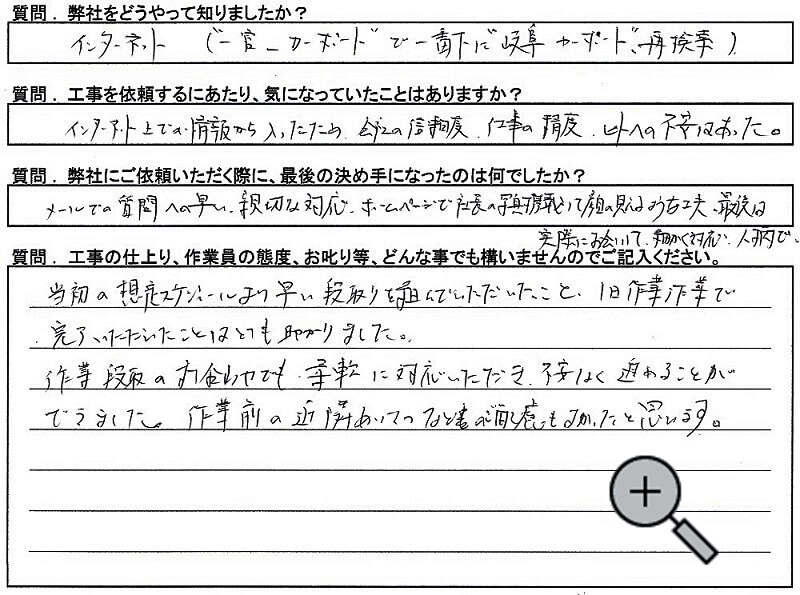 質問．弊社をどうやって知りましたか？
インターネット （"一宮 カーポート"で一番下に"岐阜 カーポート"再検索）
質問．工事を依頼するにあたり、気になっていたことはありますか？
インターネット上での情報から入ったため、会社の信頼度、仕事の精度、ヒトへの不安はあった。
質問．弊社にご依頼いただく際に、最後の決め手になったのは何でしたか？
メールでの質問への早い、親切な対応、ホームページで社長の写真 顔の見えるような工夫、最後は
実際にお会いして、細かく対応、人柄で。
質問．工事の仕上り、作業員の態度、お叱り等、どんな事でも構いませんのでご記入ください。
当初の想定スケジュールより早い段取りを組んでいただいたこと、1日作業で
完了いただいたことはとても助かりました。
作業段取の でも柔軟に対応いただき、不安なく進めることが
できました。作業前の近隣あいさつなど の配慮もよかったと思います。